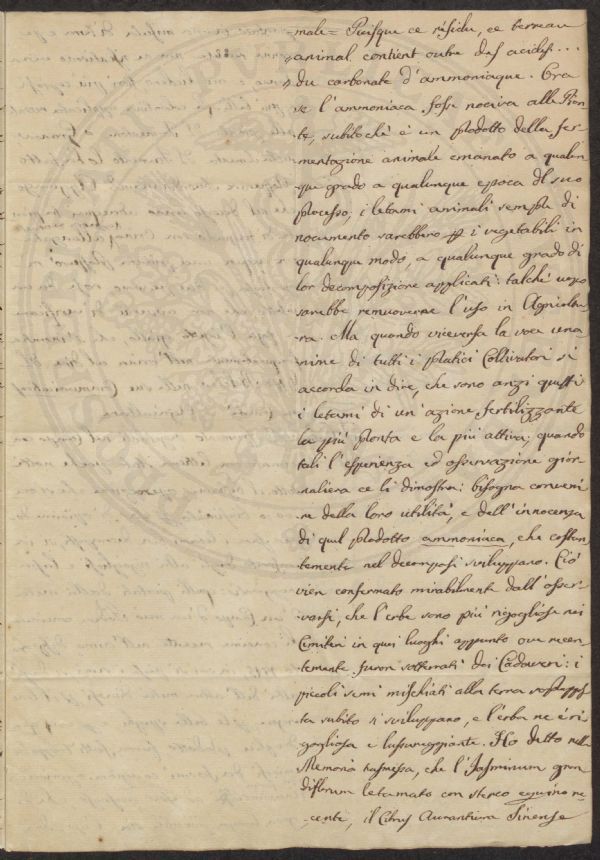 male = Puisque ce résidu, ce terreau
„ animal contient outre des acides...
„ du carbonate d'ammoniaque. Ora
se l'ammoniaca fosse nociva alle Pian
te, subitochè è un prodotto della fer
mentazione animale emanato a qualun
que grado a qualunque epoca del suo
processo, i letami animali sempre di
nocumento sarebbero pp i vegetabili in
qualunque modo, a qualunque grado di
lor decomposizione applicati: talchè uopo
sarebbe remuoverne l'uso in Agricoltu
ra. Ma quando viceversa la voce una
nime di tutti i pratici Coltivatori si
accorda in dire, che sono anzi questi
i letami di un'azione fertilizzante
la più pronta e la più attiva; quando
tali l'esperienza ed osservazione gior
naliera ce li dimostra: bisogna conveni
re della loro utilità, e dell'innocenza
di quel prodotto ammoniaca, che costan
temente nel decomporsi sviluppano. Ciò
vien confermato mirabilmente dall'osser
varsi, che l'erbe sono più rigogliose nei
Cimiteri in quei luoghi appunto ove recen
temente furon sotterrati dei Cadaveri: i
piccoli semi mischiati alla terra
ta subito si sviluppano, e l'erba ne è ri
gogliosa e lussureggiante. Ho detto nella
Memoria trasmessa, che l'Jasminum gran
diflorum letamato con sterco equino re
cente, il Citrus Aurantium Sinense